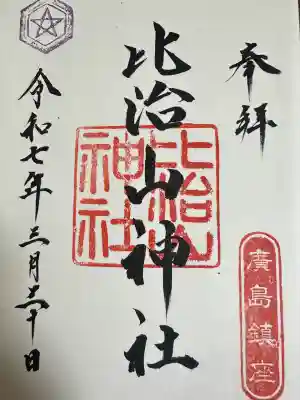 奉拝
廣島鎮座
比治山神社
比治山
神社
令和七年三月三十日